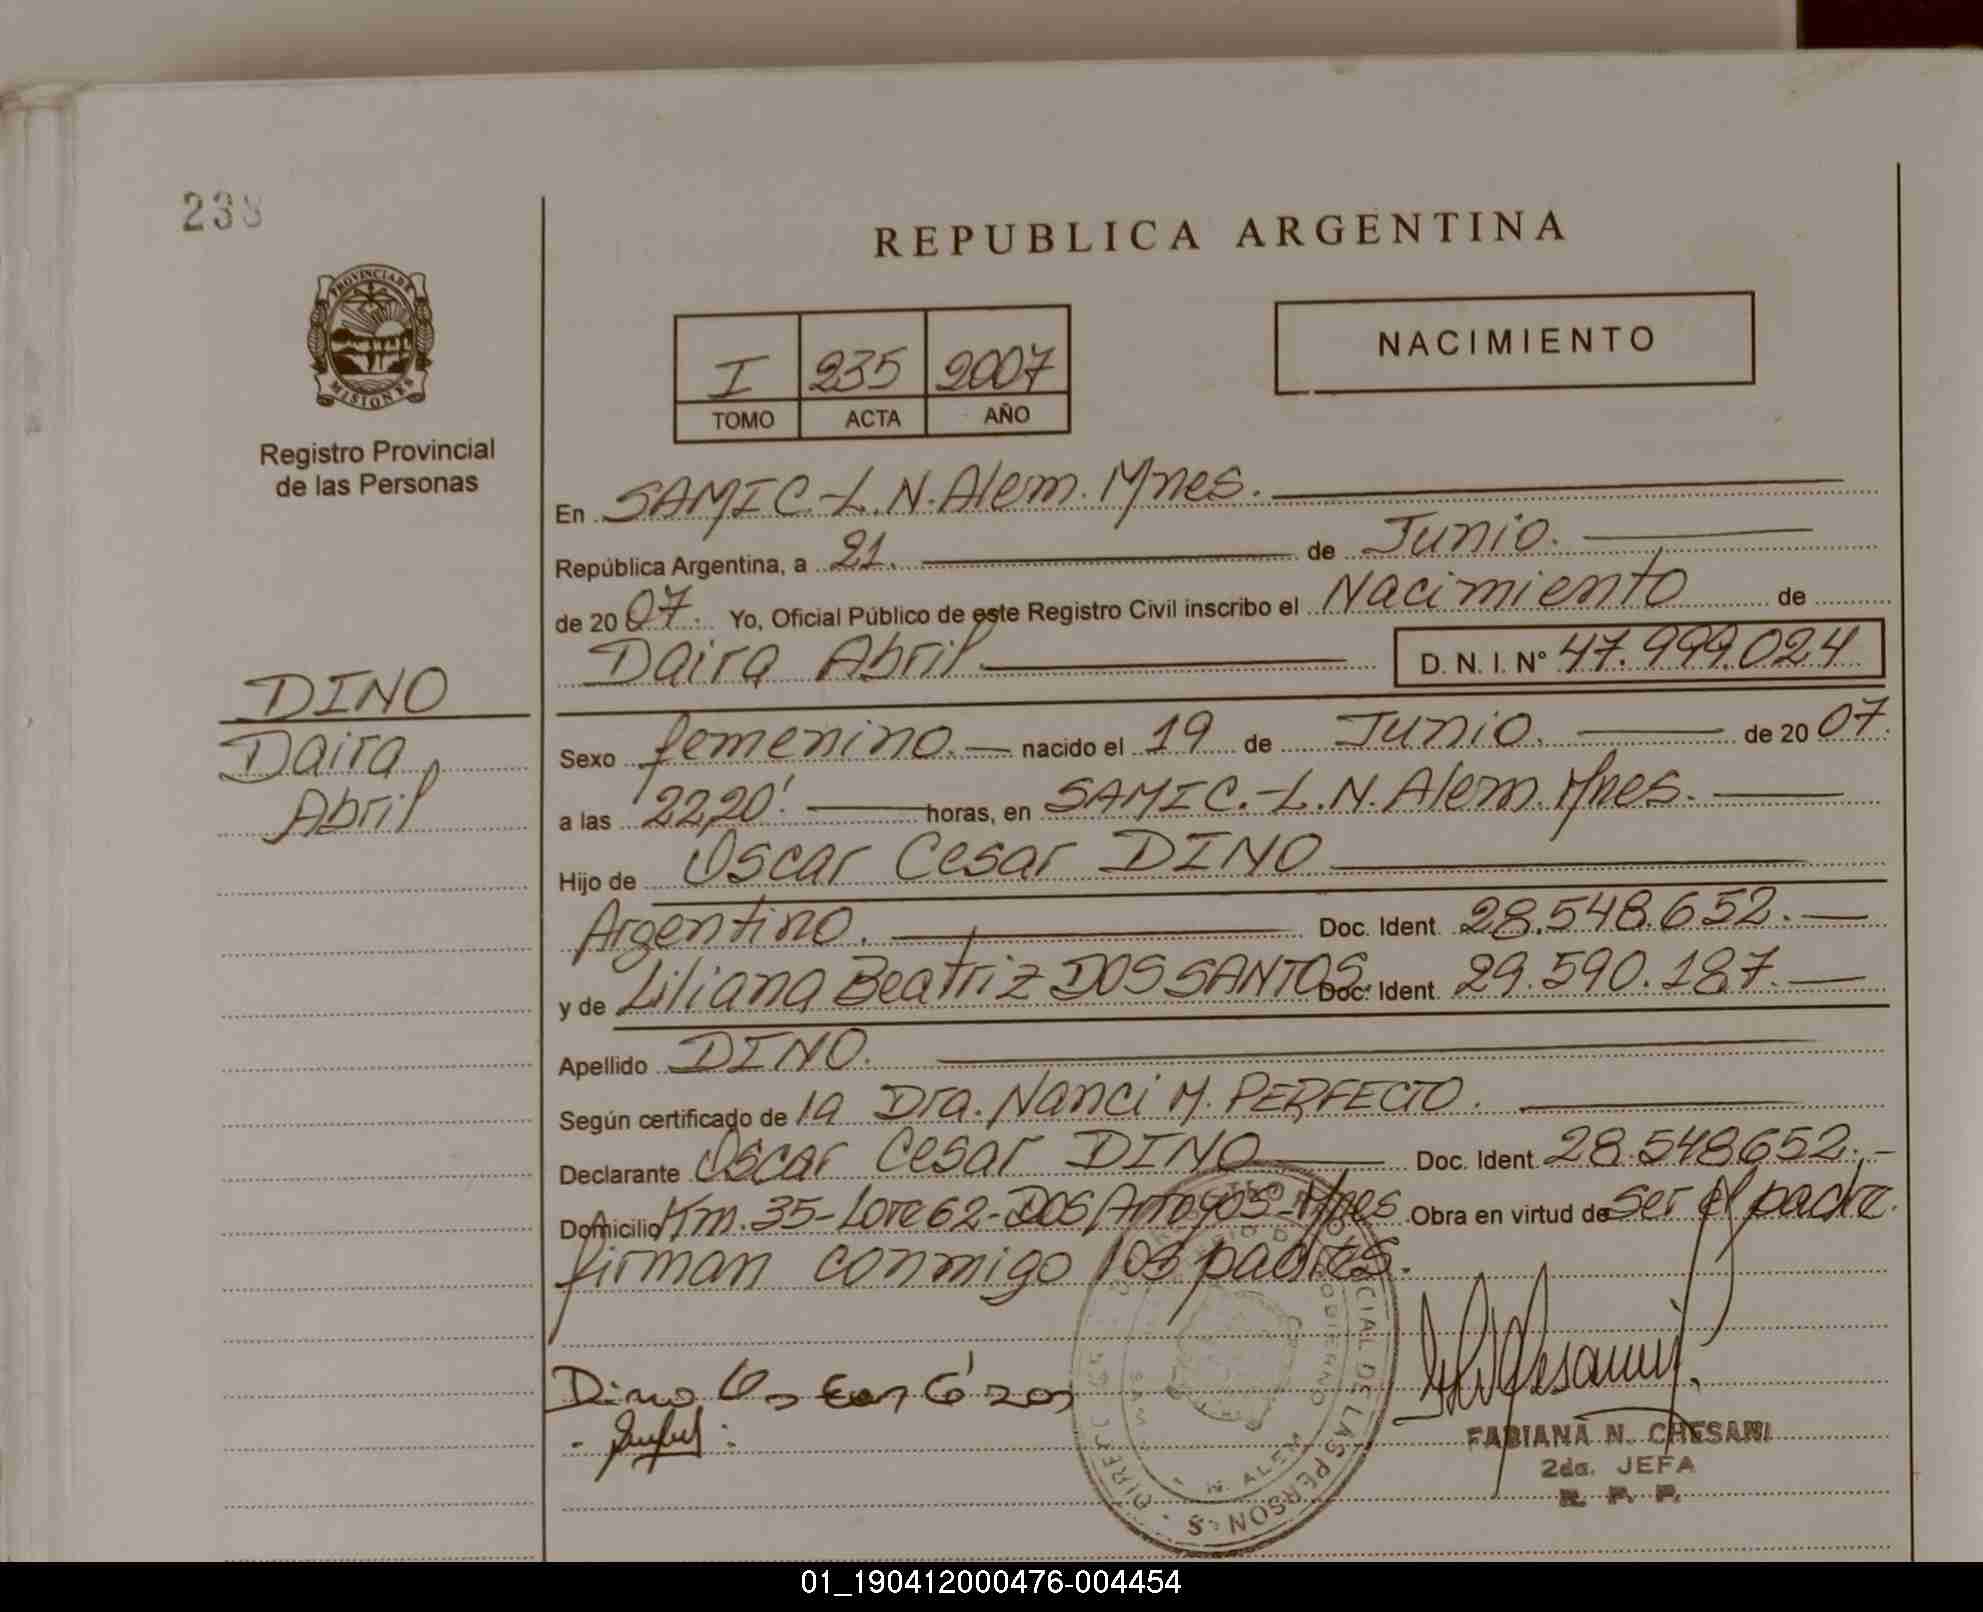 238
REPUBLICA ARGENTINA
PROVINCIA DE MISIONES
Registro Provincial
de las Personas
I 235 2007
TOMO ACTA AÑO
NACIMIENTO
En SAMIC.-L.N.Alem.Mnes.
República Argentina, a 21. de Junio.
de 2007. Yo, Oficial Público de este Registro Civil inscribo el Nacimiento de
Daira Abril D. N. I. N° 47.999.024
DINO
Daira
Abril
Sexo femenino. nacido el 19 de Junio. de 2007.
a las 22,20' horas, en SAMIC.-L.N.Alem.Mnes.
Hijo de Oscar Cesar DINO
Argentino. Doc. Ident. 28.548.652.
y de Liliana Beatriz DOS SANTOS. Doc. Ident. 29.590.187.
Apellido DINO.
Según certificado de la Dra. Nanci M. PERFECTO.
Declarante Oscar Cesar DINO Doc. Ident. 28.548652.-
Domicilio Km.35-Lote 62-DOS Arroyos-Mnes Obra en virtud de ser el padre.
firman conmigo los padres.
Dino
FABIANA N. CHESANI
2da. JEFA
R. P. P.
01_190412000476-004454